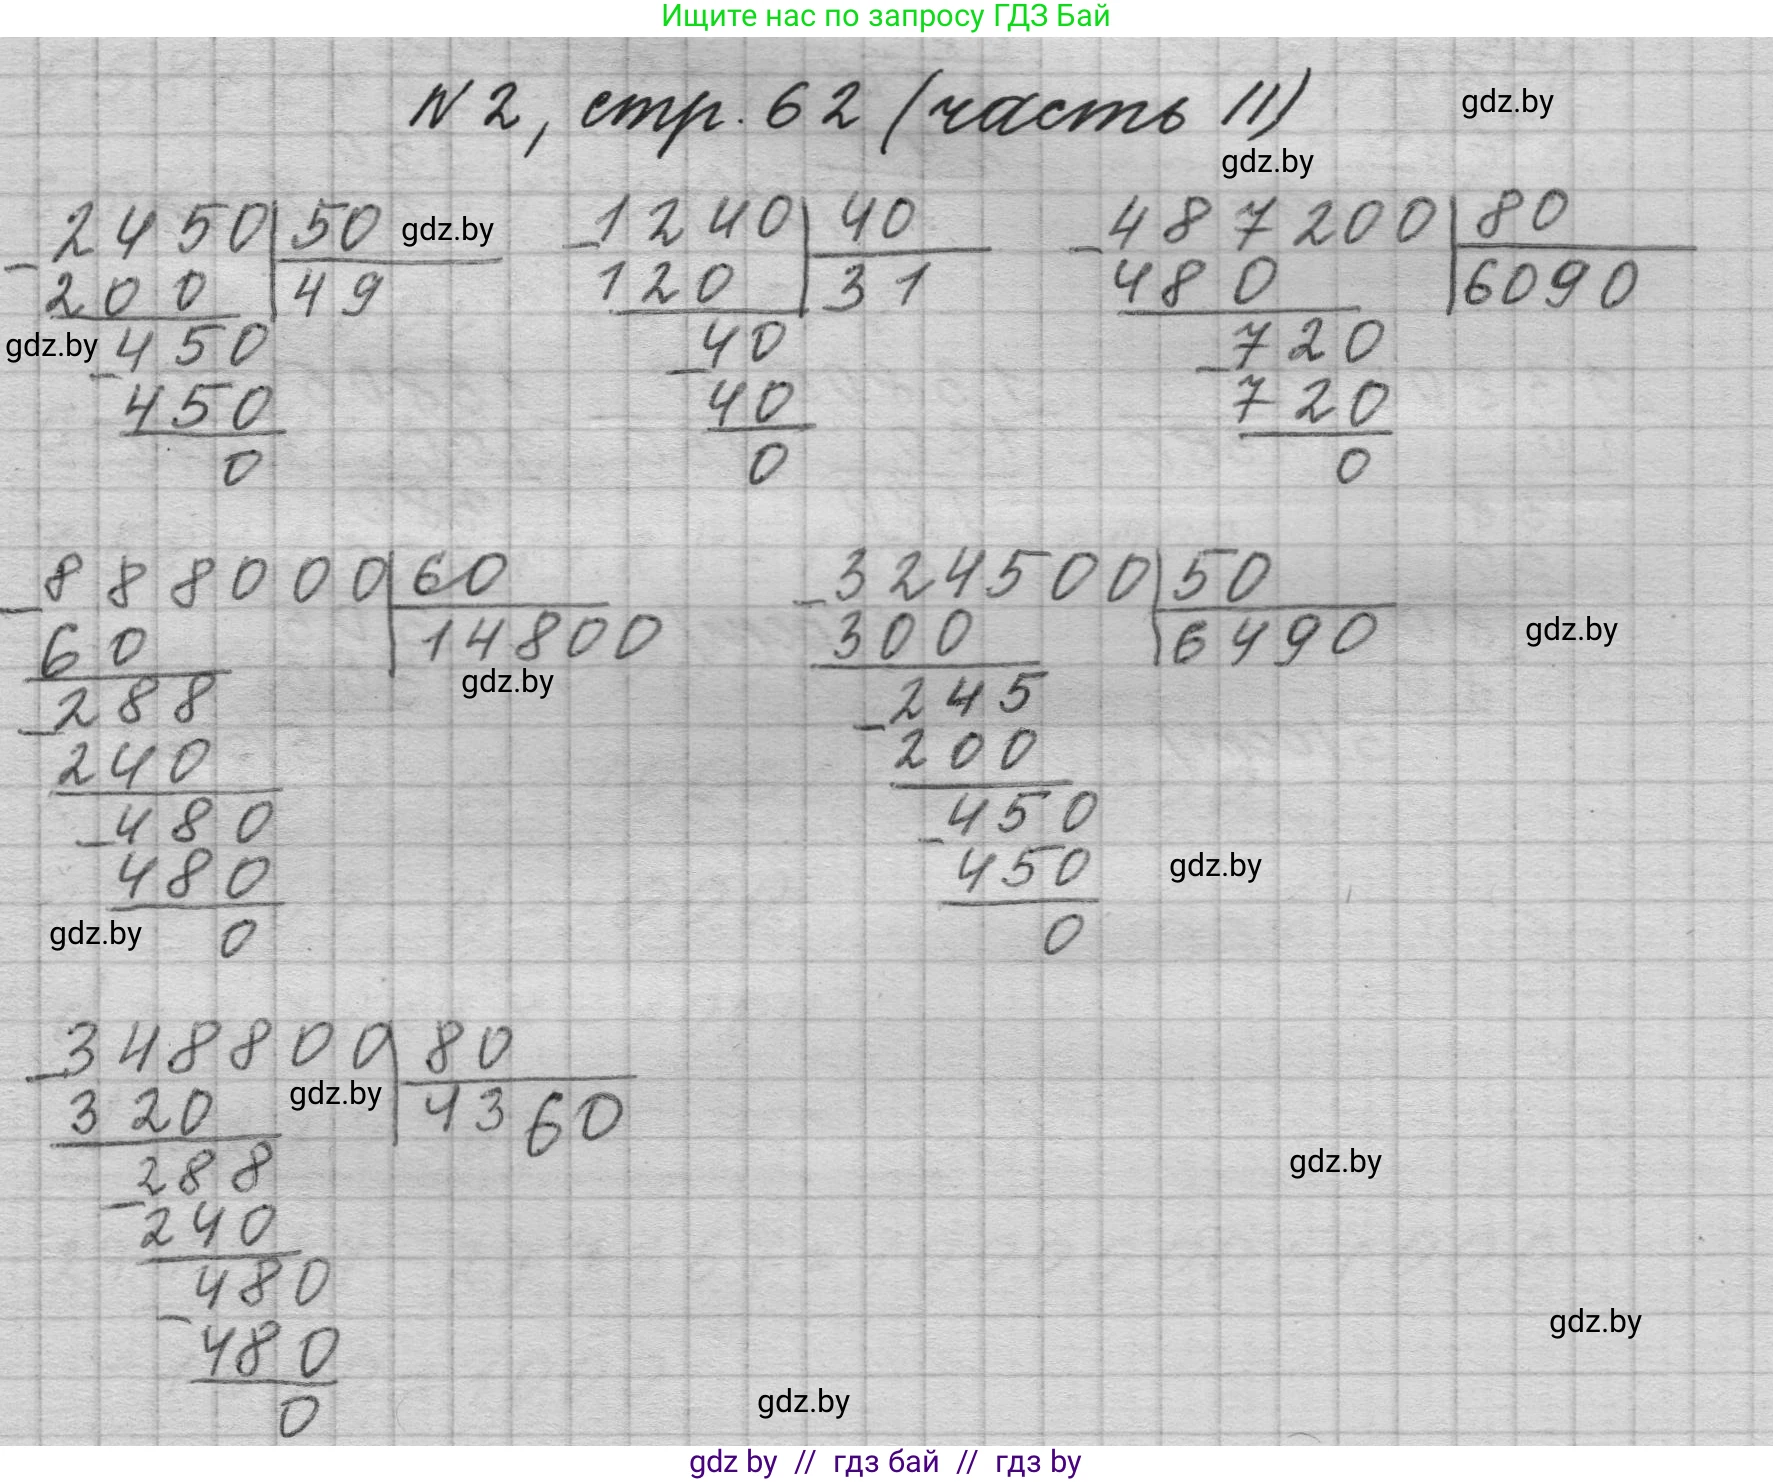 Ищите нас по запросу ГДЗ Бай
N2, стр. 62 (часть II)
gdz.by
gdz.by
2450 50
gdz.by
200 49
gdz.by
450
450
0
1240 40
120 31
40
40
0
487200 80
480 6090
720
720
0
888000 60
60 14800
gdz.by
288
240
480
480
gdz.by
0
324500 50
300 6490
gdz.by
245
200
450
450
gdz.by
0
348800 80
320 4360
gdz.by
288
240
480
480
0
gdz.by
gdz.by
gdz.by
gdz by // гдз бай // гдз by